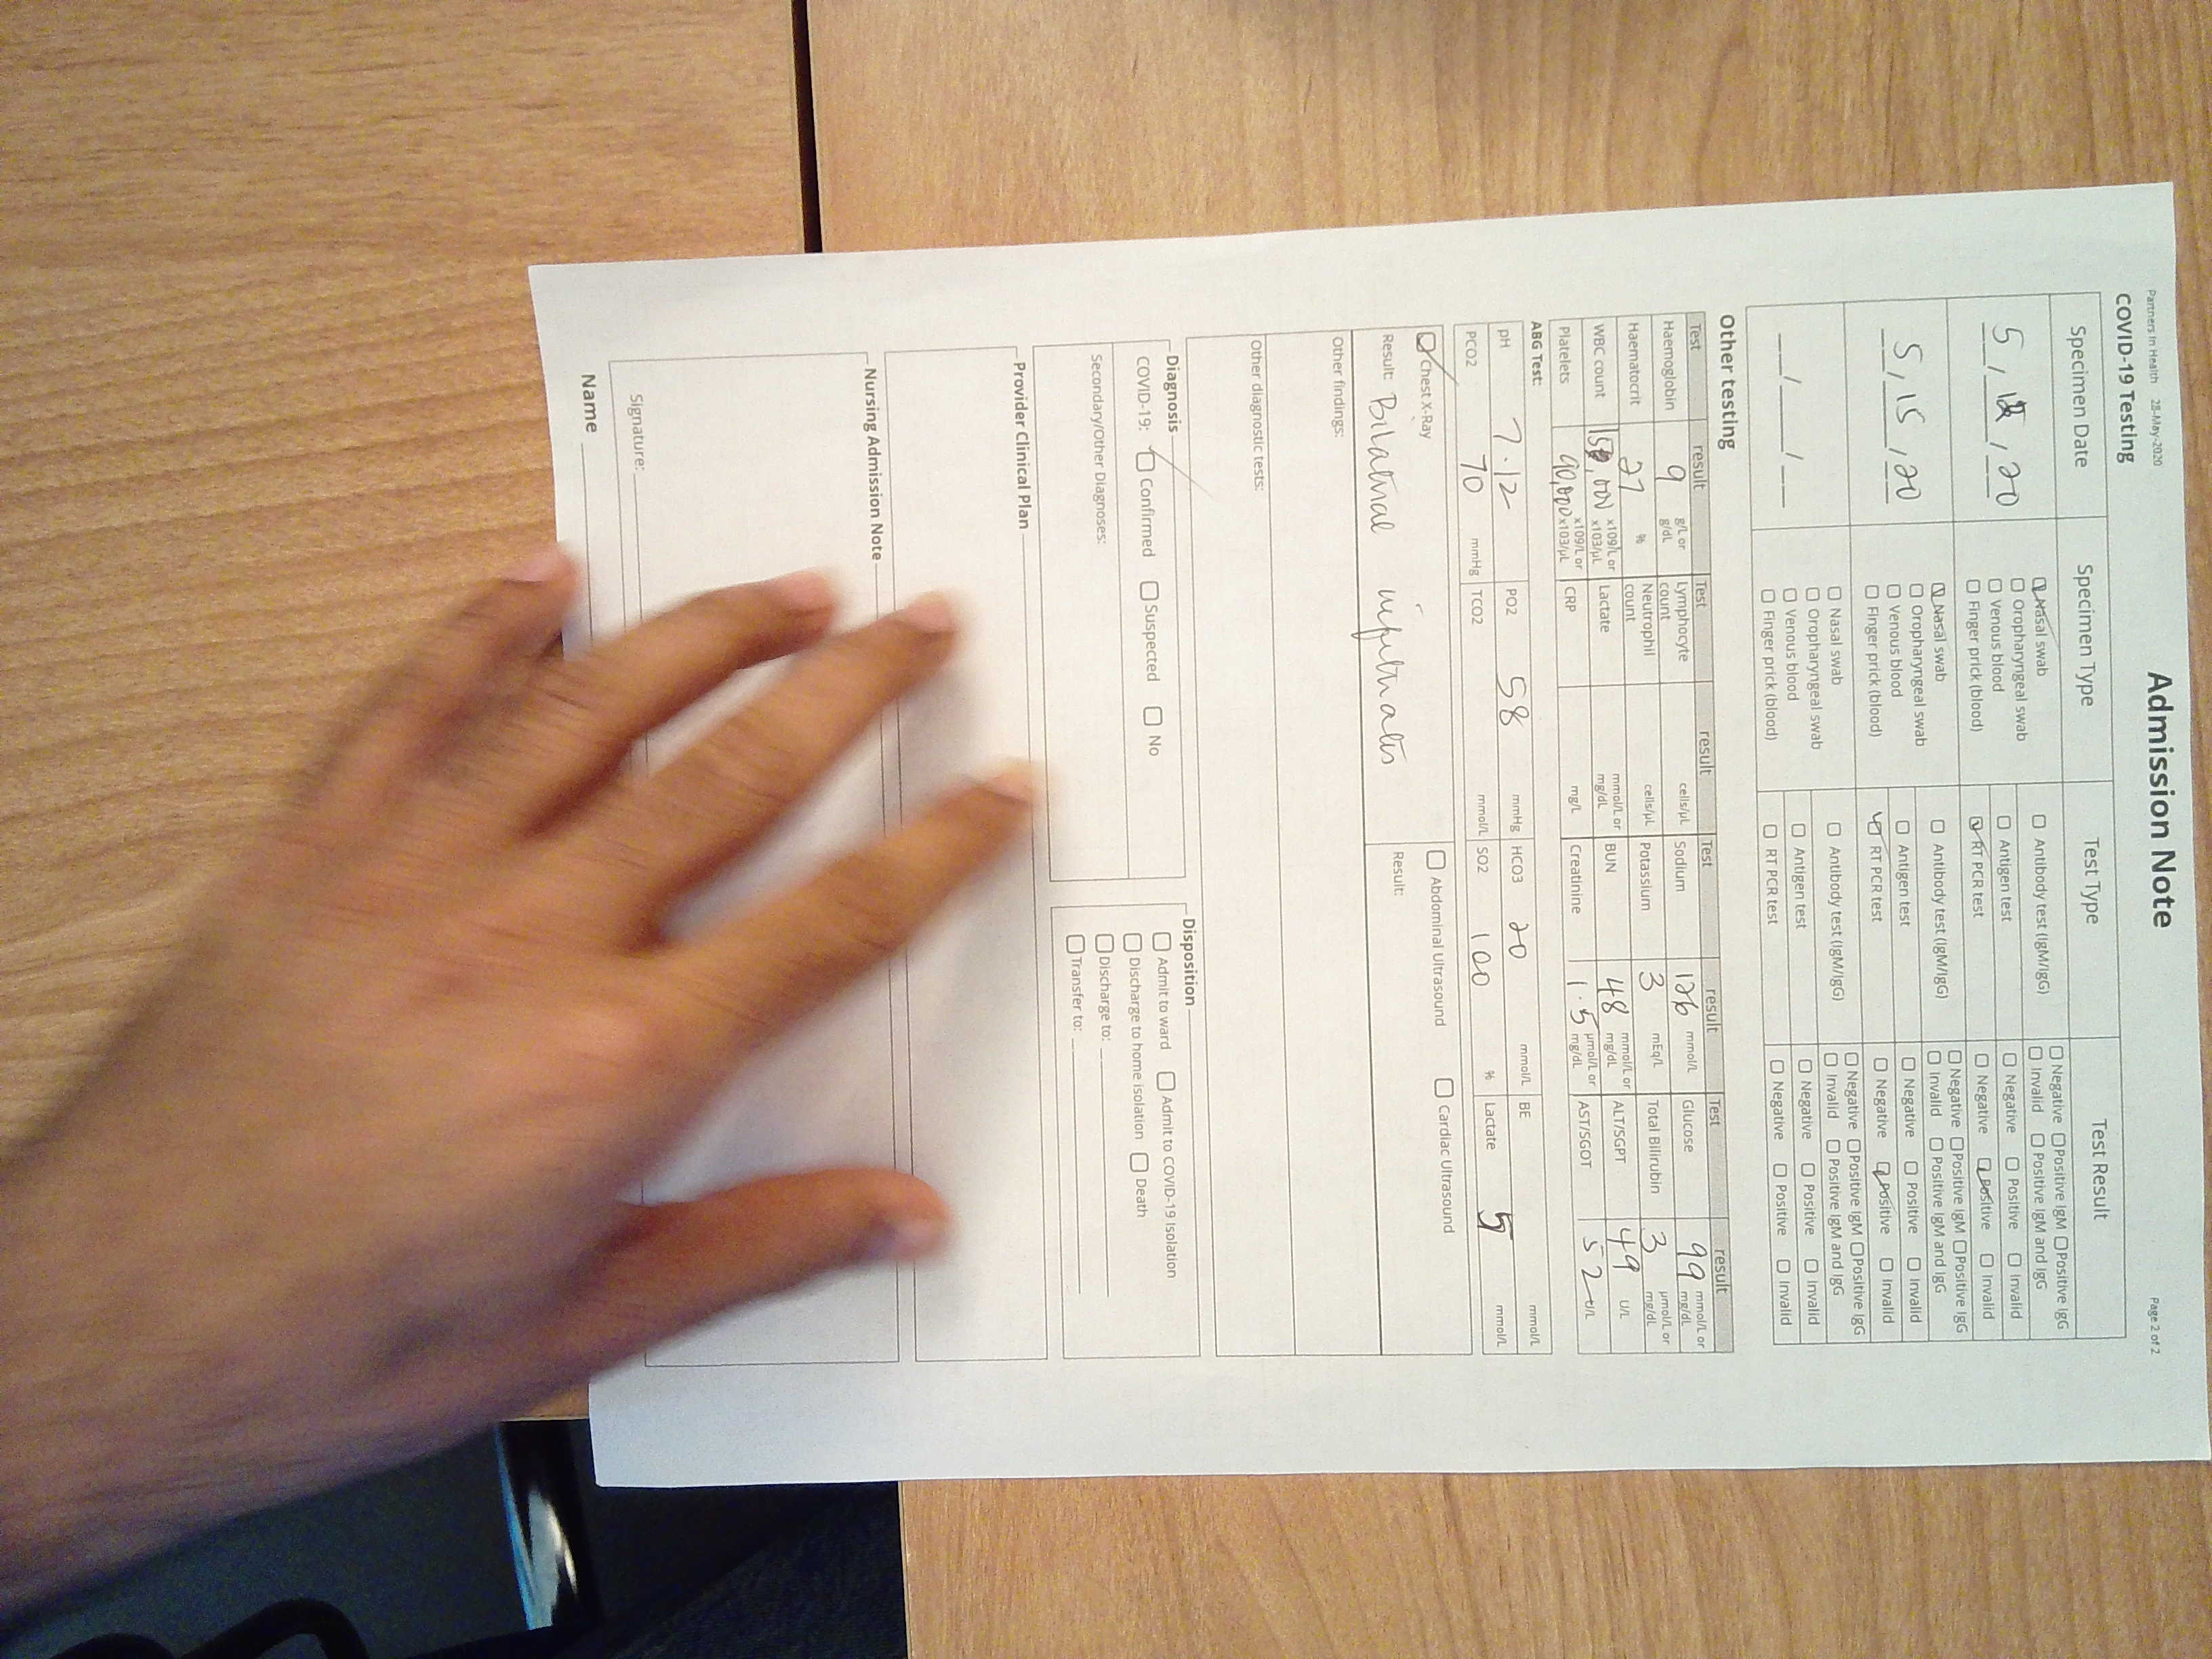 Partners In Health 28-May-2020
Admission Note
Page 2 of 2
COVID-19 Testing
Specimen Date Specimen Type Test Type Test Result
5 / 12 / 20
☑ Nasal swab
☐ Oropharyngeal swab
☐ Venous blood
☐ Finger prick (blood)
☐ Antibody test (IgM/IgG) ☐ Negative ☐ Positive IgM ☐ Positive IgG
☐ Invalid ☐ Positive IgM and IgG
☐ Antigen test ☐ Negative ☐ Positive ☐ Invalid
☑ RT PCR test ☐ Negative ☑ Positive ☐ Invalid
5 / 15 / 20
☑ Nasal swab
☐ Oropharyngeal swab
☐ Venous blood
☐ Finger prick (blood)
☐ Antibody test (IgM/IgG) ☐ Negative ☐ Positive IgM ☐ Positive IgG
☐ Invalid ☐ Positive IgM and IgG
☐ Antigen test ☐ Negative ☐ Positive ☐ Invalid
☑ RT PCR test ☐ Negative ☑ Positive ☐ Invalid
__/__/__
☐ Nasal swab
☐ Oropharyngeal swab
☐ Venous blood
☐ Finger prick (blood)
☐ Antibody test (IgM/IgG) ☐ Negative ☐ Positive IgM ☐ Positive IgG
☐ Invalid ☐ Positive IgM and IgG
☐ Antigen test ☐ Negative ☐ Positive ☐ Invalid
☐ RT PCR test ☐ Negative ☐ Positive ☐ Invalid
Other testing
Test result Test result Test result Test result
Haemoglobin 9 g/L or g/dL Lymphocyte count cells/µL Sodium 126 mmol/L Glucose 99 mmol/L or mg/dL
Haematocrit 27 % Neutrophil count cells/µL Potassium 3 mEq/L Total Bilirubin 3 µmol/L or mg/dL
WBC count x109/L or x103/µL Lactate mmol/L or mg/dL BUN 48 mmol/L or mg/dL ALT/SGPT 49 U/L
Platelets 90,000 x109/L or x103/µL CRP mg/L Creatinine 1.5 µmol/L or mg/dL AST/SGOT 52 U/L
ABG Test:
pH 7.12 PO2 58 mmHg HCO3 20 mmol/L BE mmol/L
PCO2 70 mmHg TCO2 mmol/L SO2 100 % Lactate 5 mmol/L
☑ Chest X-Ray ☐ Abdominal Ultrasound ☐ Cardiac Ultrasound
Result: Bilateral infiltrates Result:
Other findings:
Other diagnostic tests:
Diagnosis
COVID-19: ☑ Confirmed ☐ Suspected ☐ No
Secondary/Other Diagnoses:
Disposition
☐ Admit to ward ☐ Admit to COVID-19 Isolation
☐ Discharge to home isolation ☐ Death
☐ Discharge to:
☐ Transfer to:
Provider Clinical Plan
Nursing Admission Note
Signature:
Name